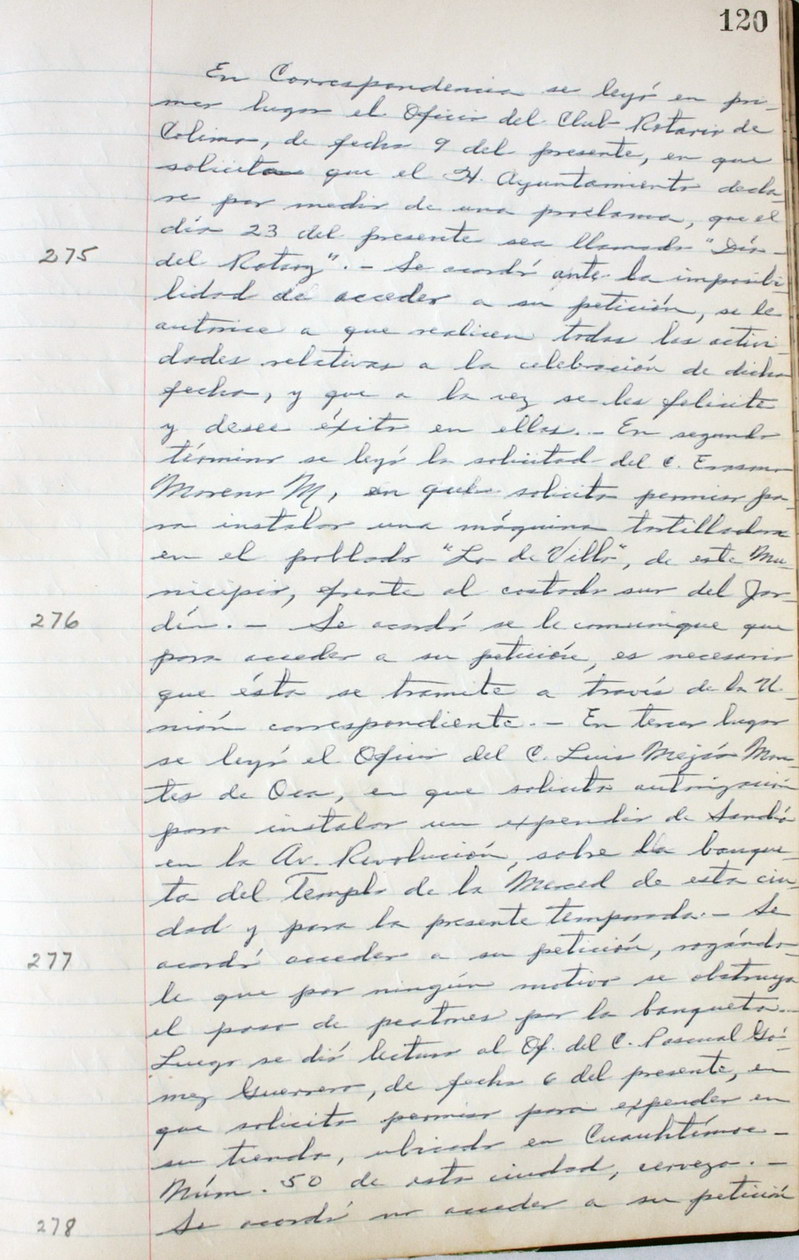 120
En Correspondencia se leyó en pri-
mer lugar el Oficio del Club Rotario de
Colima, de fecha 9 del presente, en que
solicita que el H. Ayuntamiento decla-
re por medio de una proclama, que el
día 23 del presente sea llamado "Día-
275 del Rotary".- Se acordó ante la imposibi-
lidad de acceder a su petición, se le
autorice a que realicen todas las activi-
dades relativas a la celebración de dicha
fecha, y que a la vez se les felicite
y desee éxito en ellas.- En segundo
término se leyó la solicitud del C. Erasmo
Moreno M, en que solicita permiso pa-
ra instalar una máquina tortilladora
en el poblado "Lo de Villa", de este Mu-
nicipio, frente al costado sur del Jar-
276 dín.- Se acordó se le comunique que
para acceder a su petición, es necesario
que ésta se tramite a través de la U-
nión correspondiente.- En tercer lugar
se leyó el Oficio del C. Luis Mejía Mon-
tes de Oca, en que solicita autorización
para instalar un expendio de Sandía
en la Av. Revolución, sobre la banque-
ta del Templo de la Merced de esta ciu-
dad y para la presente temporada.- Se
277 acordó acceder a su petición, rogándo-
le que por ningún motivo se obstruya
el paso de peatones por la banqueta.-
Luego se dió lectura al Of. del C. Pascual Gó-
mez Guerrero, de fecha 6 del presente, en
que solicita permiso para expender en
su tienda, ubicada en Cuauhtémoc-
Núm. 50 de esta ciudad, cerveza.-
278 Se acordó no acceder a su petición